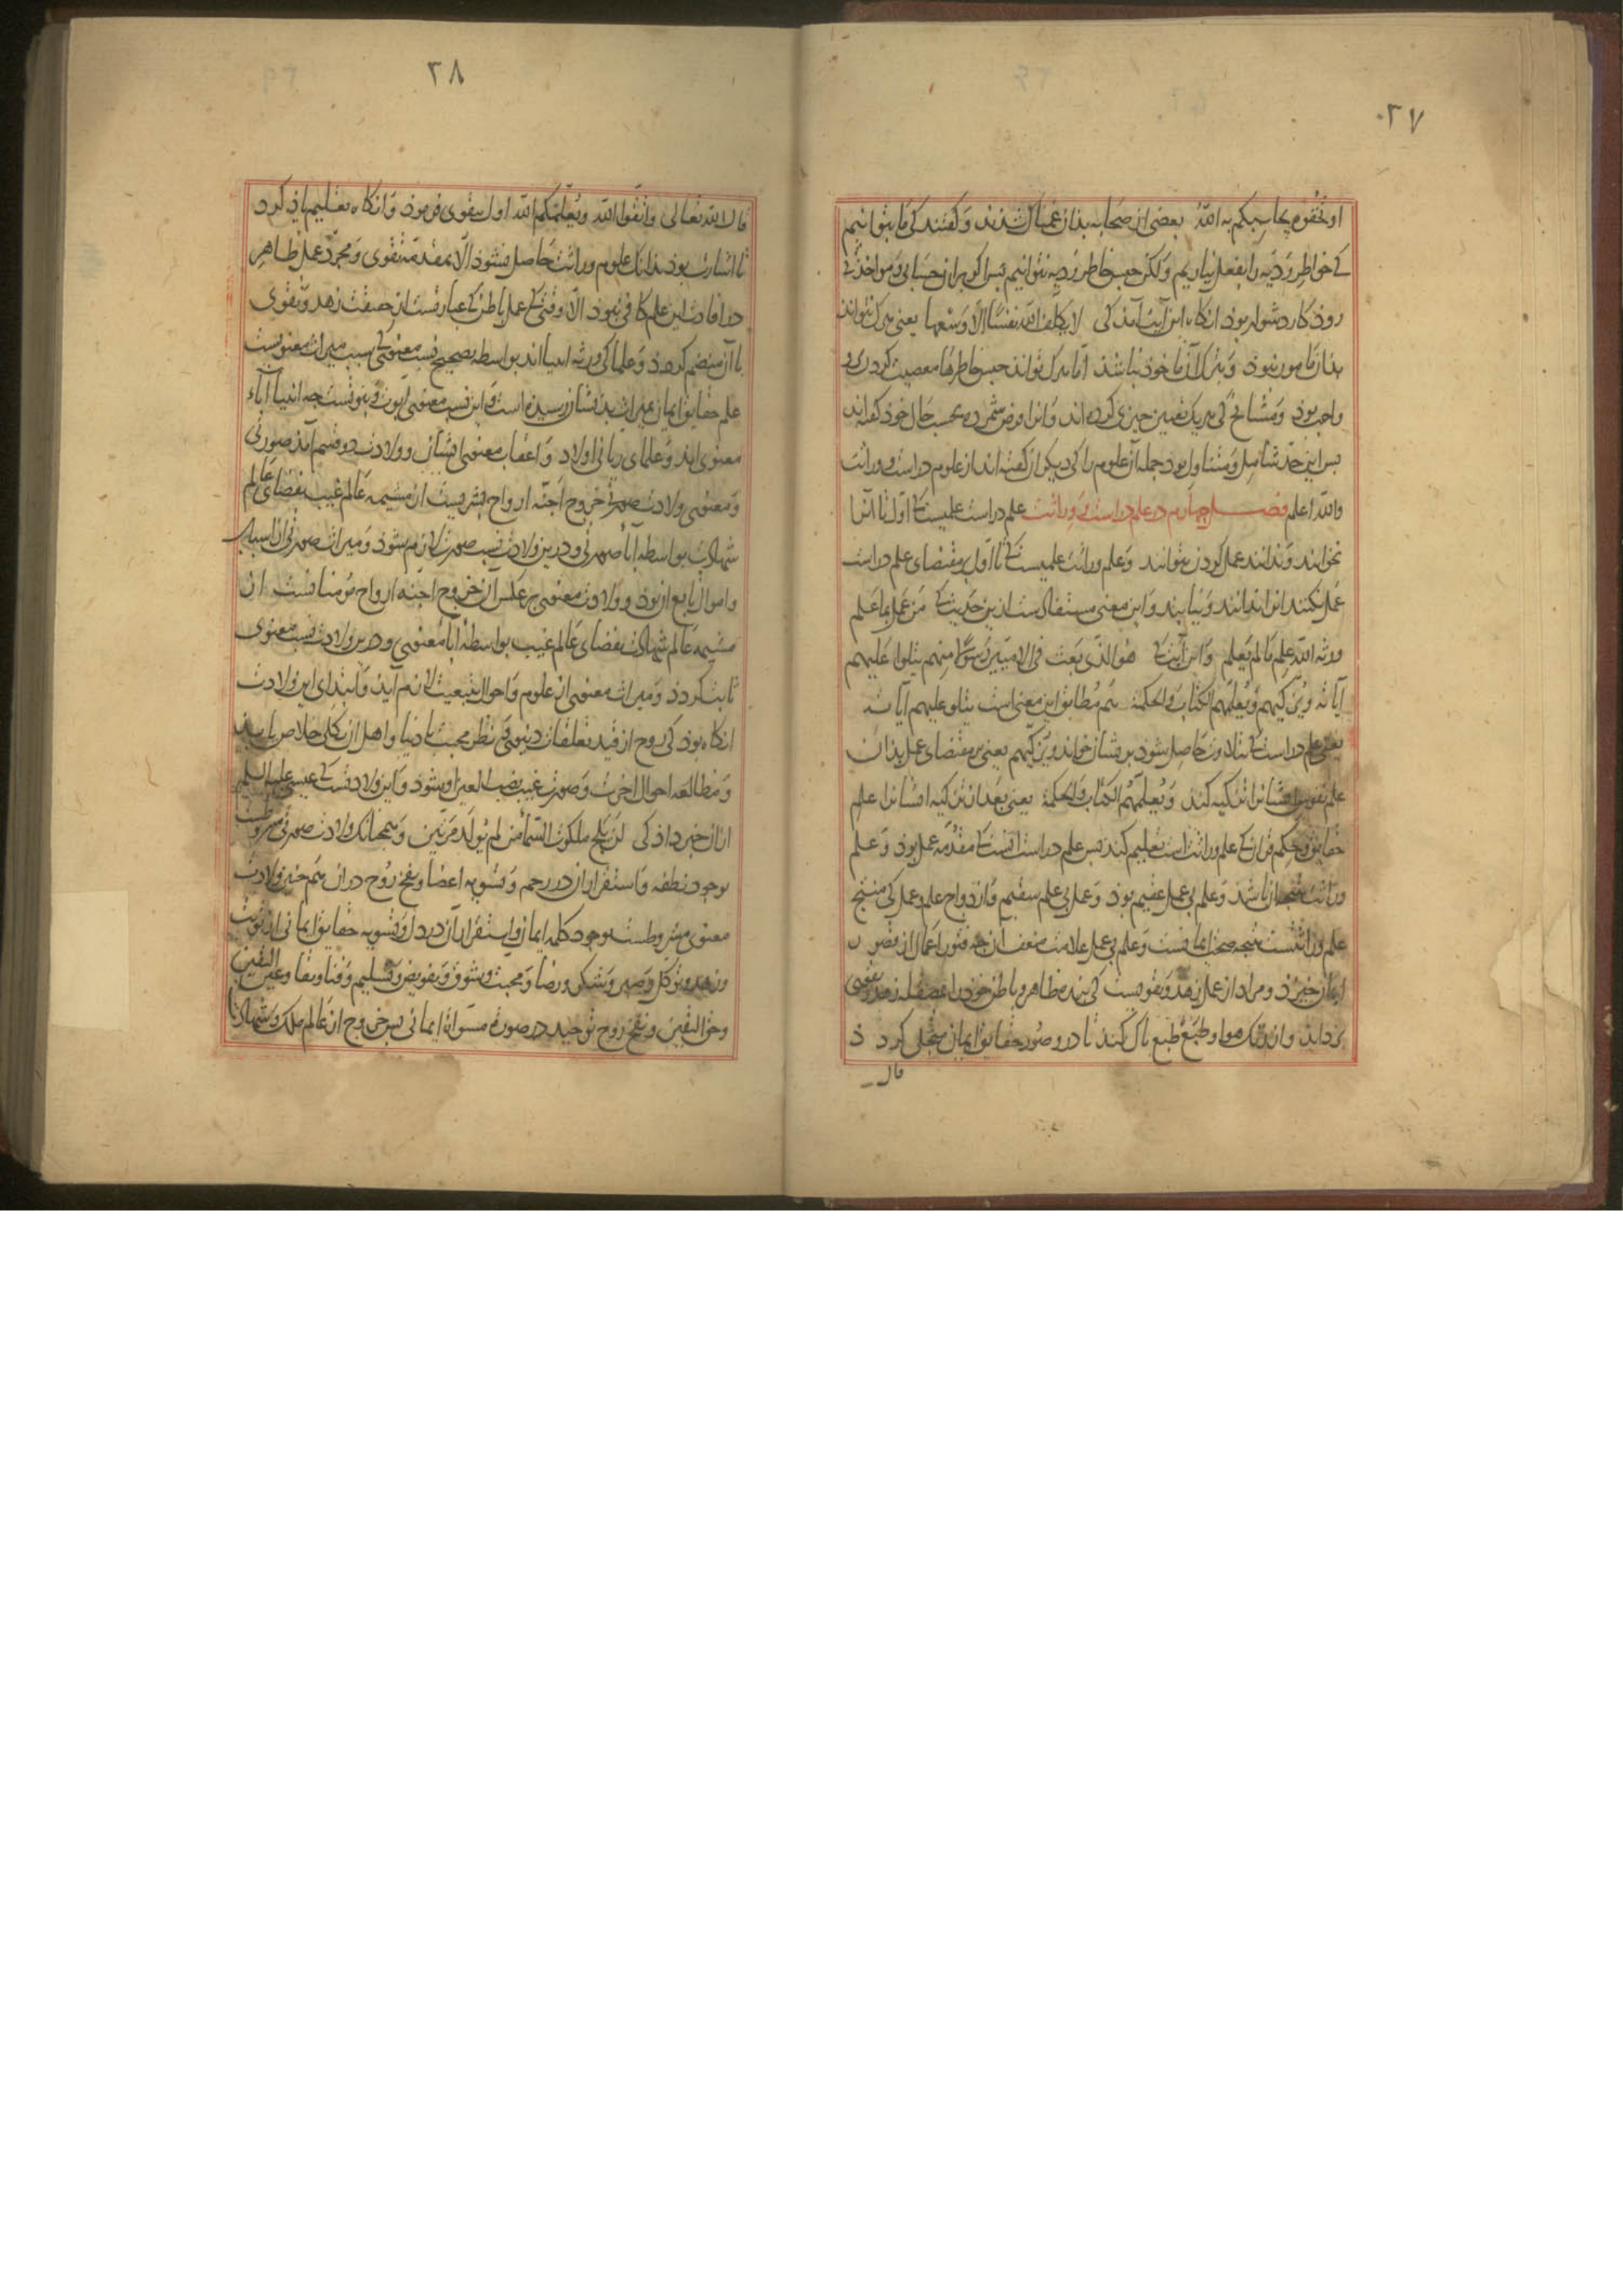 ٢٧
او تخفوه یحاسبکم به الله بعضی از صحابه بذان غمناک شذند و گفتند کی ما بتوانیم
کی خواطر ردیه را بفعل نیاریم ولکن حبس خاطر ردیه نتوانیم بس اگر بران حسابی و مواخذتی
روذ کار دشوار بوذ انکاه این آیت آمذ کی لا یکلف الله نفسا الا وسعها یعنی هرک نتواند
بذان مامور نبوذ و بترک آن ماخوذ نباشذ اما هرک تواند حبس خاطرها معصیت کردن برو
واجب بوذ و مشایخ کی هریک تعیین چیزی کرده اند و انرا فرض شمرده بحسب حال خوذ گفته اند
بس این حد شامل و متناول بود جمله آن علوم را کی دیگران گفته اند از علوم دراست و وراثت
والله اعلم فصل چهارم در علم دراست و وراثت علم دراست علمیست کی تا اول آنرا
نخوانند و ندانند عمل کردن نتوانند و علم وراثت علمیست کی تا اول بر مقتضای علم دراست
عمل نکنند انرا ندانند و نیابند و این معنی مستفادست ازین حدیث کی من عمل بما علم
ورثه الله علم ما لم یعلم و این آیت کی هو الذی بعث فی الامیین رسولا منهم یتلوا علیهم
آیاته و یزکیهم و یعلمهم الکتاب والحکمة هم مطابق این معنی است یتلو علیهم آیاته
یعنی علم دراست کی بتلاوت حاصل شود بریشان خواند و یزکیهم یعنی بر مقتضای عمل بذان
علم نفوس ایشانرا تزکیه کند و یعلمهم الکتاب والحکمة یعنی بعد از تزکیه ایشانرا علم
حقایق و حکم قران کی علم وراثت است تعلیم کند بس علم دراست انست کی مقدمه عمل بوذ و علم
وراثت نتیجه ان باشد و علم بی عمل عقیم بوذ و عمل بی علم سقیم و ازدواج علم و عمل کی منتج
علم وراثتست نتیجه صحت ایمانست و علم بی عمل علامت ضعف ان چه فتور اعمال از قصور
ایمان خیزد و مراد از عمل زهد و تقویست کی بنده ظاهر و باطن خوذ را اعضفله زهد و تقوی
کرداند و از درنک هوا و طبع طبع باک کند تا درو صور حقایق ایمان متجلی کردذ
قال
٢٨
قال الله تعالی واتقوا الله ویعلمکم الله اول بتقوی فرموذ و انکاه تعلیم یاذ کرد
تا اشارت بوذ بذانک علوم وراثت حاصل نشوذ الا بمقدمه تقوی و مجرد عمل ظاهر
در افادت این علم کافی نبوذ الا وقتی کی عمل باطن کی عبارتست از حقیقت زهد و تقوی
با آن منضم کردذ و علما کی ورثه انبیا اند بواسطه تصحیح نسبت معنوی کی سبب میراث معنویست
علم حقایق ایمان بمیراث بذیشان رسیذه است و این نسبت معنوی ابوت و بنوتست چه انبیا آباء
معنوی اند و علمای ربانی اولاد و اعقاب معنوی ایشان و ولادت دو قسم آمذ صوری
و معنوی ولادت صوری خروج اجنه ارواح بشریست از مشیمه عالم غیب بفضای عالم
شهادت بواسطه آباء صوری و درین ولادت نسب صورت لازم شود و میراث صوری از اسباب
و اموال تابع ان بوذ و ولادت معنوی بر عکس ان خروج اجنه ارواح مومنانست از
مشیمه عالم شهادت بفضای عالم غیب بواسطه آباء معنوی و درین ولادت نسبت معنوی
ثابت کردذ و میراث معنوی از علوم و احوال بتبعیت لازم آیذ و ابتدای این ولادت
انکاه بوذ کی روح از قید تعلقات دنیوی و نظر محبت با دنیا و اهل ان بکلی خلاص یابد
و مطالعه احوال اخرت و صورت غیب نصب العین او شود و این ولادتست کی عیسی علیه السلم
ازان خبر داذ کی لن یلج ملکوت السماء من لم یولد مرتین و همچنانک ولادت صوری مشروطست
بوجود نطفه و استقرار ان در رحم و تسویه اعضا و نفخ روح دران هم چنین ولادت
معنوی مشروطست بوجود کلمه ایمان و استقرار آن در دل و تسویه حقایق ایمانی از توبت
و زهد و توکل و صبر و شکر و رضا و محبت و شوق و تفویض و تسلیم و فنا و بقا و عین الیقین
و حق الیقین و نفخ روح توحید در صورة مسواة ایمانی بس خروج از عالم ملک و شهادت با